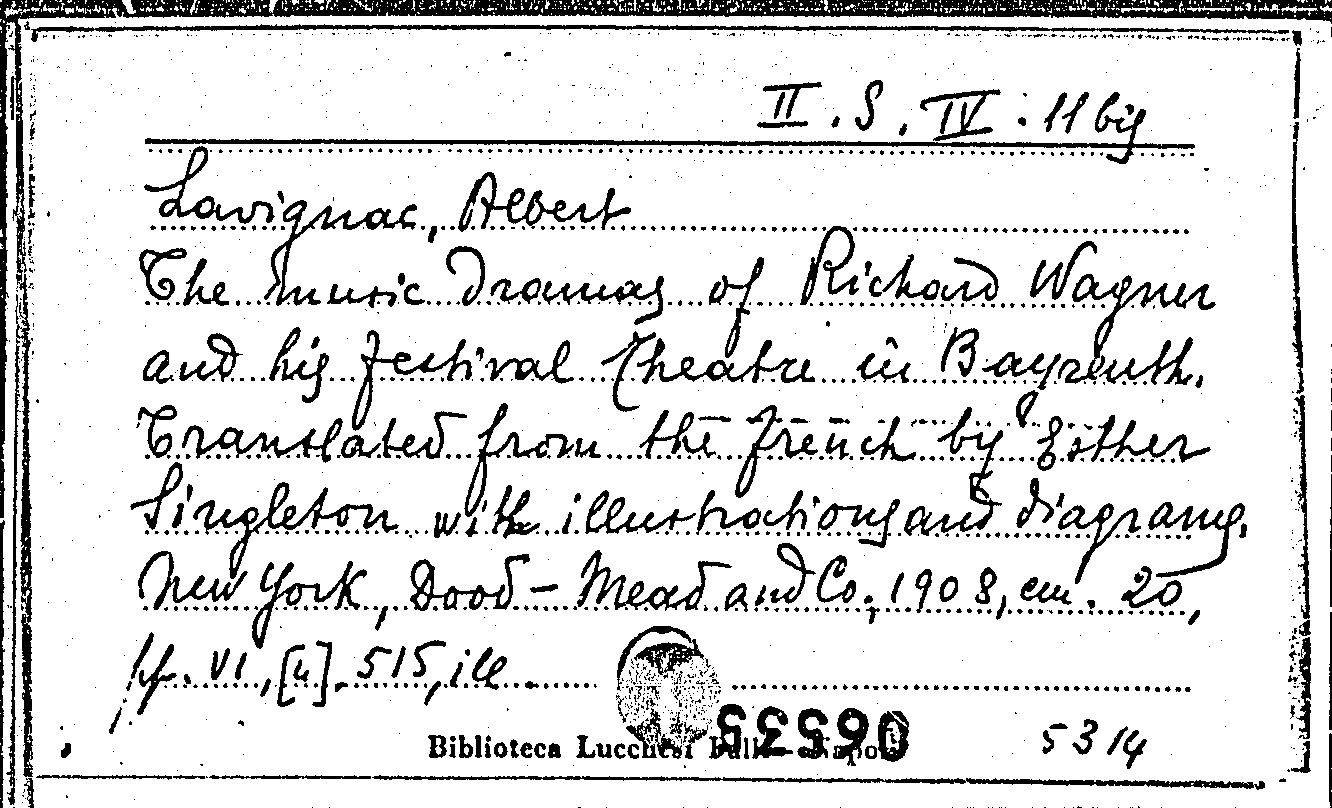 II. S. IV. 11 bis
Lavignac, Albert
The music dramas of Richard Wagner
and his festival theatre in Bayreuth.
Translated from the french by Esther
Singleton with illustrations and diagrams.
New York, Dood - Mead and Co., 1908, cm. 20,
pp. VI, [4], 515, ill
Biblioteca Lucchesi Palli
5314